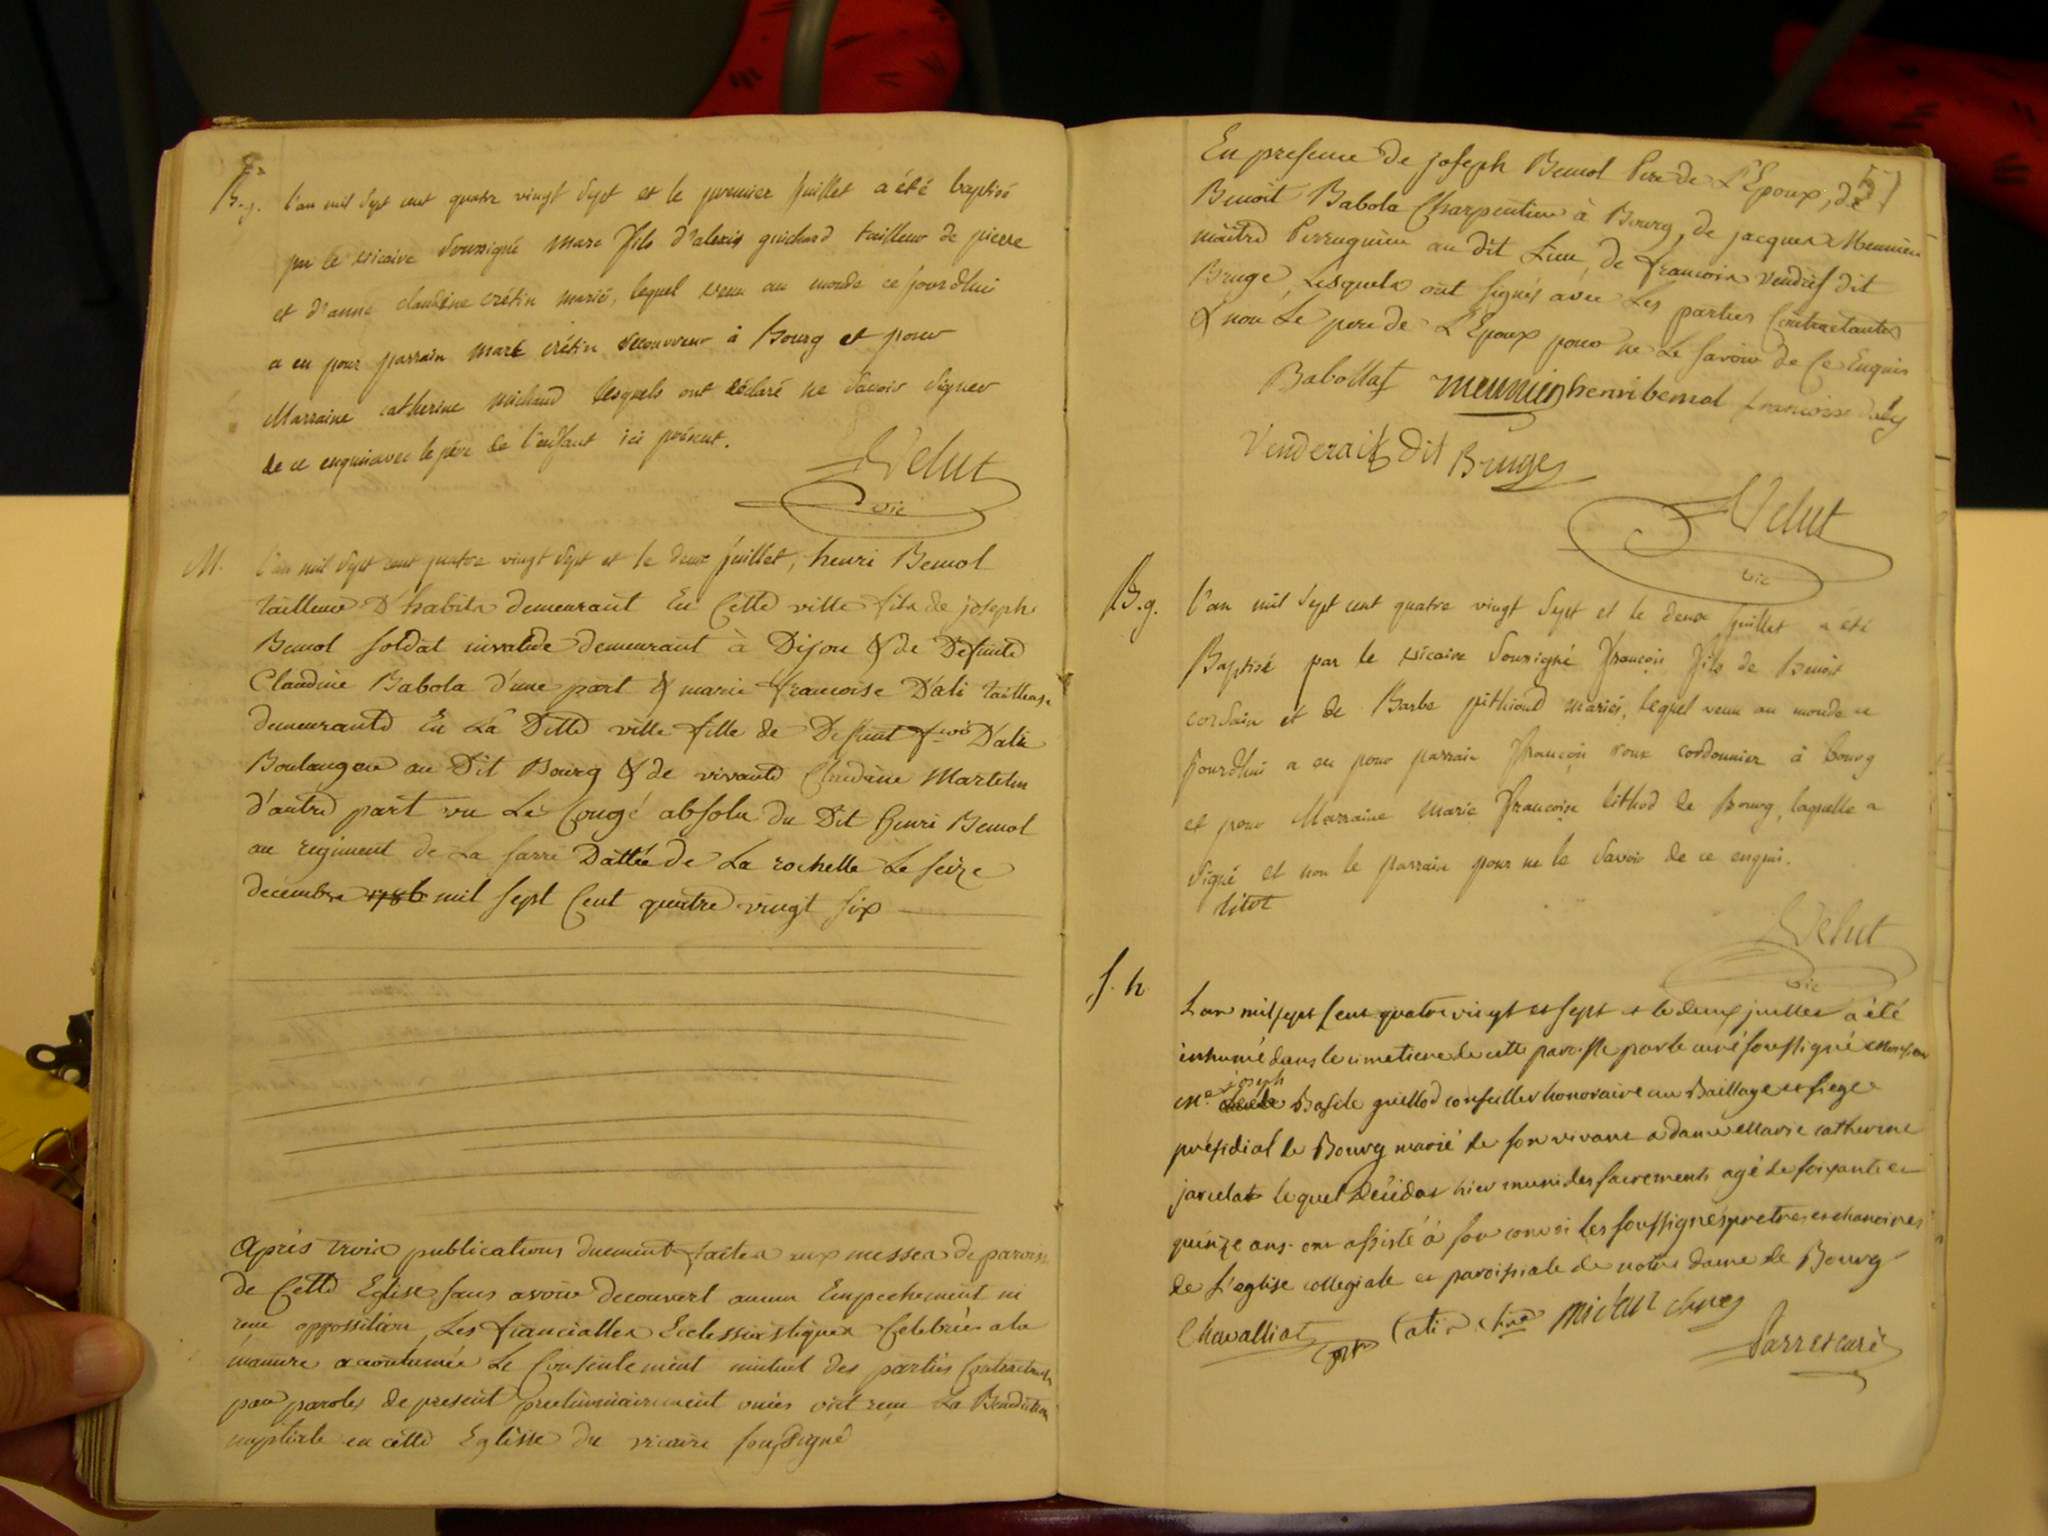 B.g. l'an mil sept cent quatre vingt sept et le premier juillet a été baptisé
par le vicaire soussigné marc fils d'alexis guichard tailleur de pierre
et d'anne claudine crétin mariés, lequel venu au monde ce jourdhui
a eu pour parrain marc crétin à Bourg et pour
Marraine catherine michaud lesquels ont déclaré ne savoir signer
de ce enquis avec le père de l'enfant ici présent.
Velut
vic
M. l'an mil sept cent quatre vingt sept et le deux juillet, henri Bemol
tailleur D'habits demeurant En Cette ville fils de joseph
Bemol soldat invalide demeurant à Dijon & de Defunte
Claudine Babola d'une part & marie francoise D'ali tailleuse
demeurante En La Ditte ville fille de Defunt f.cois D'ali
Boulanger au Dit Bourg & de vivante Claudine Martelin
d'autre part vu Le Congé absolu du Dit henri Bemol
au regiment de La sarre Dattée de La rochelle Le seize
decembre 1786 mil sept Cent quatre vingt six
Après trois publications duement faites aux messes de paroisse
de Cette Eglise sans avoir decouvert aucun Empechement ni
reçu oppossition, Les fiancialles Ecclessiastiques Celebrées a la
maniere acoutumée Le Consentement mutuel des parties Contractantes
par paroles de present préeliminairement ouies ont reçu La Benediction
nuptiale en cette Eglisse du vicaire soussigné
51
En presence de joseph Bemol Pere de L'Epoux, de
Benoit Babola Charpentier à Bourg, de jacques Meunier
maitre Perruquier au dit Lieu, de francois vendief dit
Bruge, Lesquels ont signés avec Les parties Contractantes
& non Le pere de L'Epoux pour ne Le savoir de Ce Enquis
Babollat meunier henri bemol francoise daly
Venderait Dit Bruges
Velut
vic
B.g. l'an mil sept cent quatre vingt sept et le deux juillet a été
Baptisé par le vicaire soussigné françois fils de benoit
cordain et de Barbe pithioud mariés, lequel venu au monde ce
jourdhui a eu pour parrain françois roux cordonnier à bourg
et pour Marraine marie françoise lithod de bourg, laquelle a
signé et non le parrain pour ne le savoir de ce enquis.
litot
Velut
vic
S. h. L'an mil sept cent quatre vingt et sept et le deux juillet a été
inhumé dans le cimetiere de cette paroisse par le curé soussigné
joseph
m.e Basile guillod conseiller honoraire au Baillage et siege
présidial de Bourg marié de son vivant a dame Marie catherine
jarcelat lequel décéda hier muni des sacrements agé de soixante et
quinze ans. ont assisté à son convoi les soussignés pretres et chanoines
de l'eglise collegiale et paroissiale de notre dame de Bourg
Chavalliat Catin chne midan chne
Sarret curé